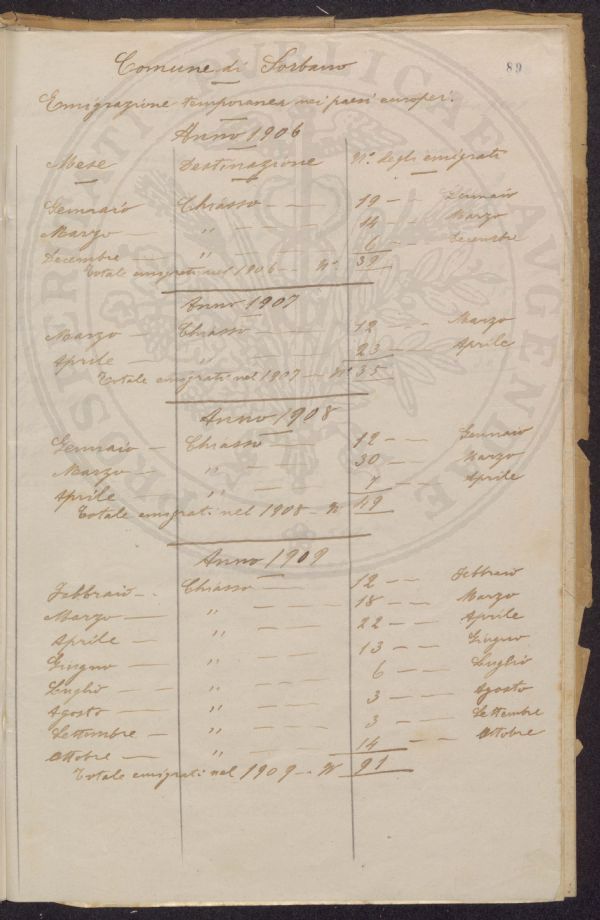 89
Comune di Sorbano
Emigrazione temporanea nei paesi europei.
Anno 1906
Mese Destinazione N.° degli emigrati
Gennaio Chiasso — — — 19 — — Gennaio
Marzo — " — — — — 14 — — Marzo
Decembre — " — — — — 6 — — Decembre
Totale emigrati nel 1906 — N° 39
Anno 1907
Marzo — Chiasso — — 12 — — Marzo
Aprile — " — — — 23 — — Aprile
Totale emigrati nel 1907 — N° 35
Anno 1908
Gennaio — Chiasso — — 12 — — Gennaio
Marzo — " — — 30 — — Marzo
Aprile — " — — 7 — — Aprile
Totale emigrati nel 1908 — N° 49
Anno 1909
Febbraio — Chiasso — — 12 — — Febbraio
Marzo — " — — — — 18 — — Marzo
Aprile — " — — — 22 — — Aprile
Giugno — " — — — 13 — — Giugno
Luglio — — " — — — 6 — — Luglio
Agosto — — " — — — 3 — — Agosto
Settembre — " — — — 3 — — Settembre
Ottobre — " — — — 14 — — Ottobre
Totale emigrati nel 1909 — N° 91
PROSPERITATI PUBLICAE AUGENDAE